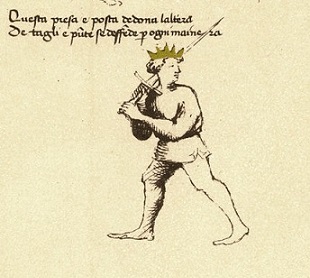 Questa presa e posta de dona laltera
De tagli e pũte se deffẽde p ogni mainera